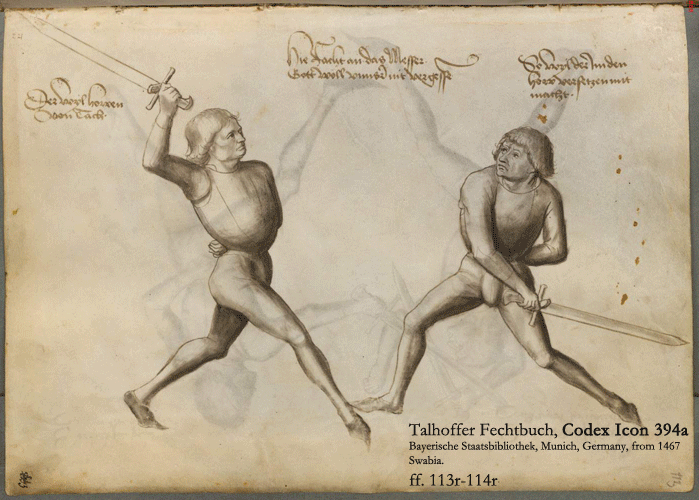 Der wyl howen
von Tach
Hie Facht an das Messer
Gott woll unnser nit vergesse
So wyl der In den
how versetzen mit
macht
Talhoffer Fechtbuch, Codex Icon 394a
Bayerische Staatsbibliothek, Munich, Germany, from 1467
Swabia.
ff. 113r-114r
113